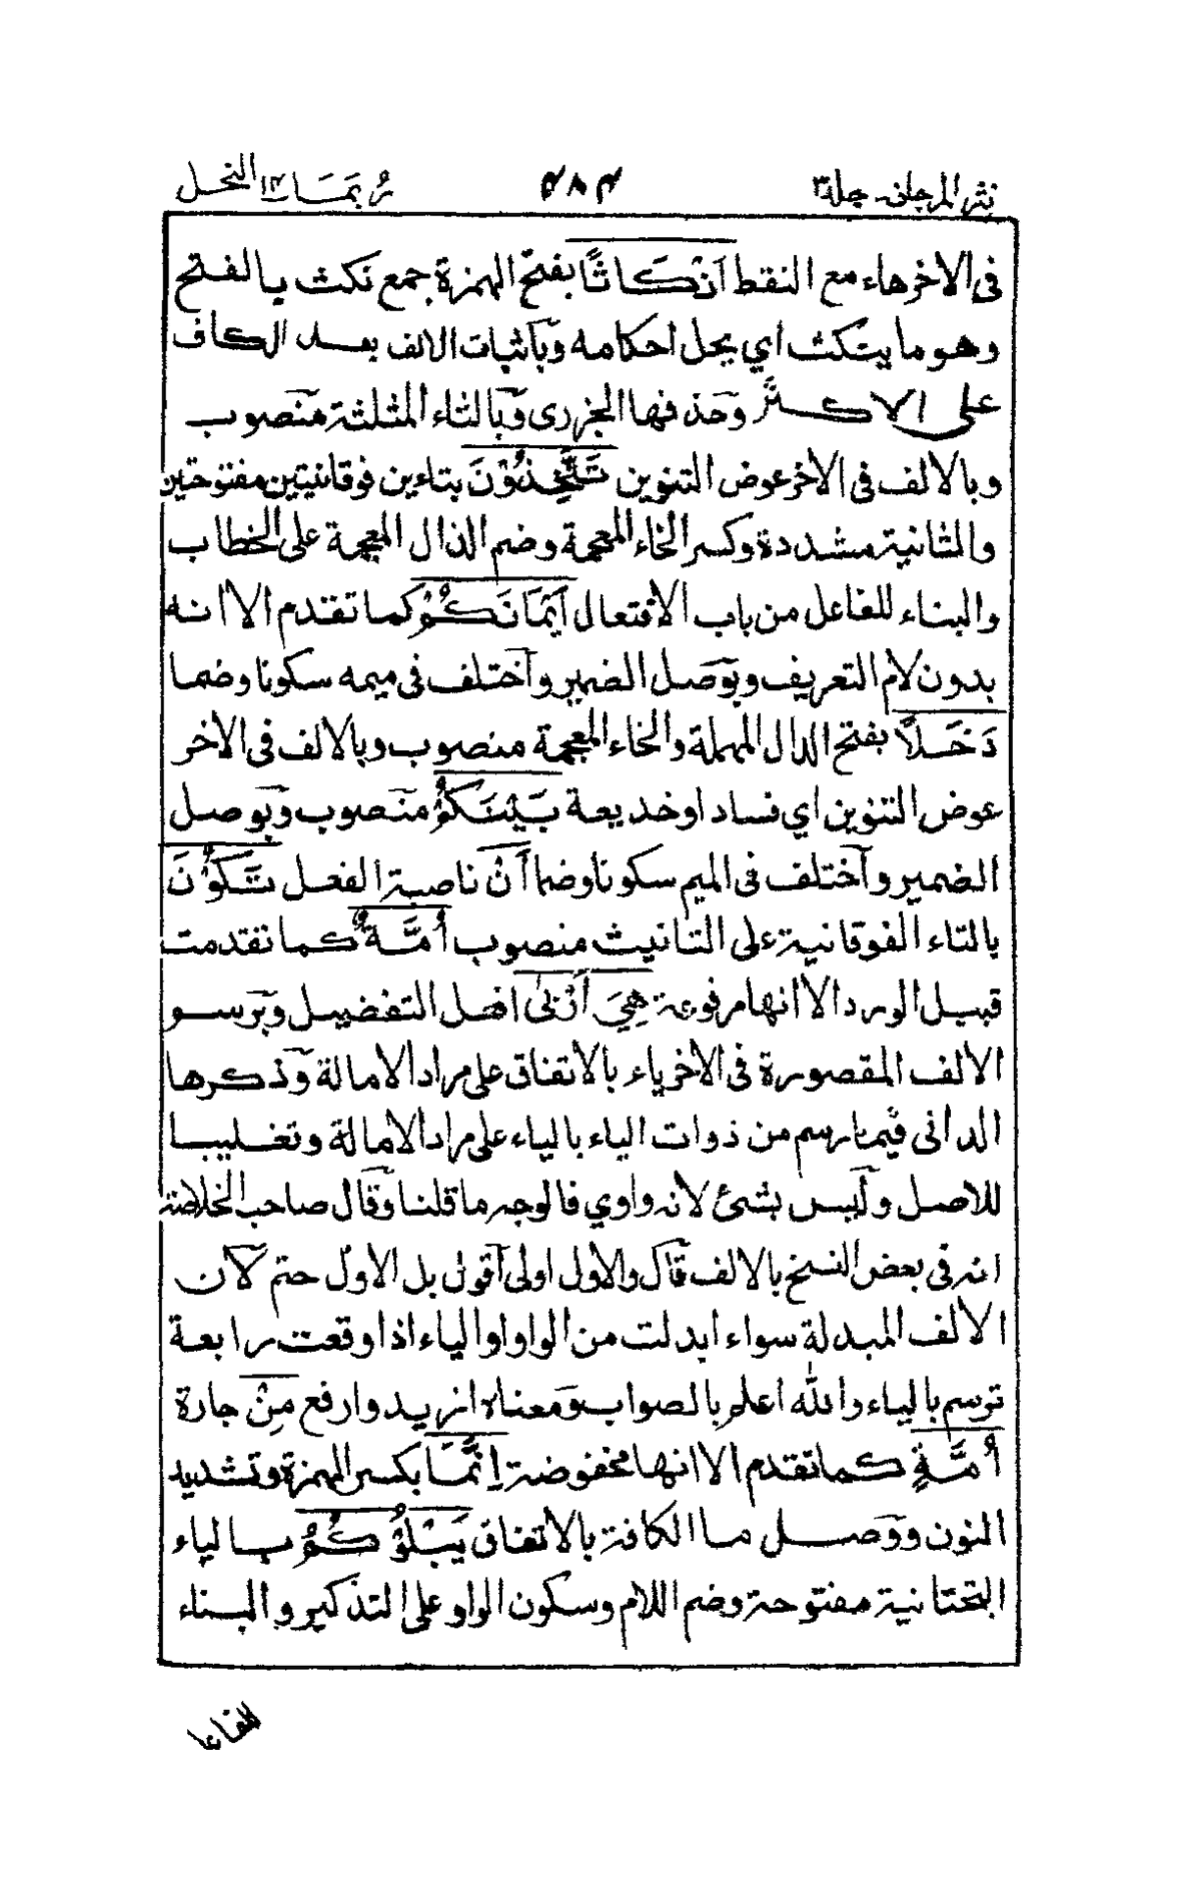 نثر المرجان۔ جلد ٣ ٤٨٣ رُبَمَا ١٤ النحل
فى الاخرهاء مع النقط اَنْكَاثًا بفتح الهمزة جمع نكث بالفتح
وهو ما ينكث اي يحل احكامه وبآثبات الالف بعد الكاف
على الاكثر وحذفها الجزرى وبآلتاء المثلثة منصوب
وبالالف فى الاخر عوض التنوين تَتَّخِذُوْنَ بتاءين فوقانيتين مفتوحتين
والثانية مشددة وكسر الخاء المعجمة وضم الذال المعجمة على الخطاب
والبناء للفاعل من باب الافتعال اَيْمَانَكُمْ كما تقدم الا انه
بدون لام التعريف وبوصل الضمير وآختلف فى ميمه سكونا وضما
دَخَلًا بفتح الدال المهملة والخاء المعجمة منصوب وبالالف فى الاخر
عوض التنوين اي فسادا وخديعة بَيْنَكُمْ منصوب وبوصل
الضمير وآختلف فى الميم سكونا وضما اَنْ ناصبة الفعل تَكُوْنَ
بالتاء الفوقانية على التانيث منصوب اُمَّةٌ كما تقدمت
قبيل الورد الا انها مرفوعة هِيَ اَرْبٰى افعل التفضيل وترسم
الالف المقصورة فى الاخر ياء بالاتفاق على مراد الامالة وذكرها
الدانى فيما رسم من ذوات الياء بالياء على مراد الامالة وتغليبا
للاصل وليس بشئ لانه واوي فالوجه ما قلنا وقال صاحب الخلاصة
انه فى بعض النسخ بالالف قال والاول اولى آقول بل الاول حتم لان
الالف المبدلة سواء ابدلت من الواو او الياء اذا وقعت رابعة
ترسم بالياء والله اعلم بالصواب ومعناه ازيد وارفع مِنْ جارة
اُمَّةٍ كما تقدم الا انها مخفوضة اِنَّمَا بكسر الهمزة وتشديد
النون ووصل ما الكافة بالاتفاق يَبْلُوْكُمُ بالياء
التحتانية مفتوحة وضم اللام وسكون الواو على التذكير والبناء
للفاعل